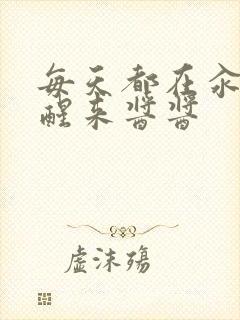 每天都在汆
醒来酱酱
虚沫殇